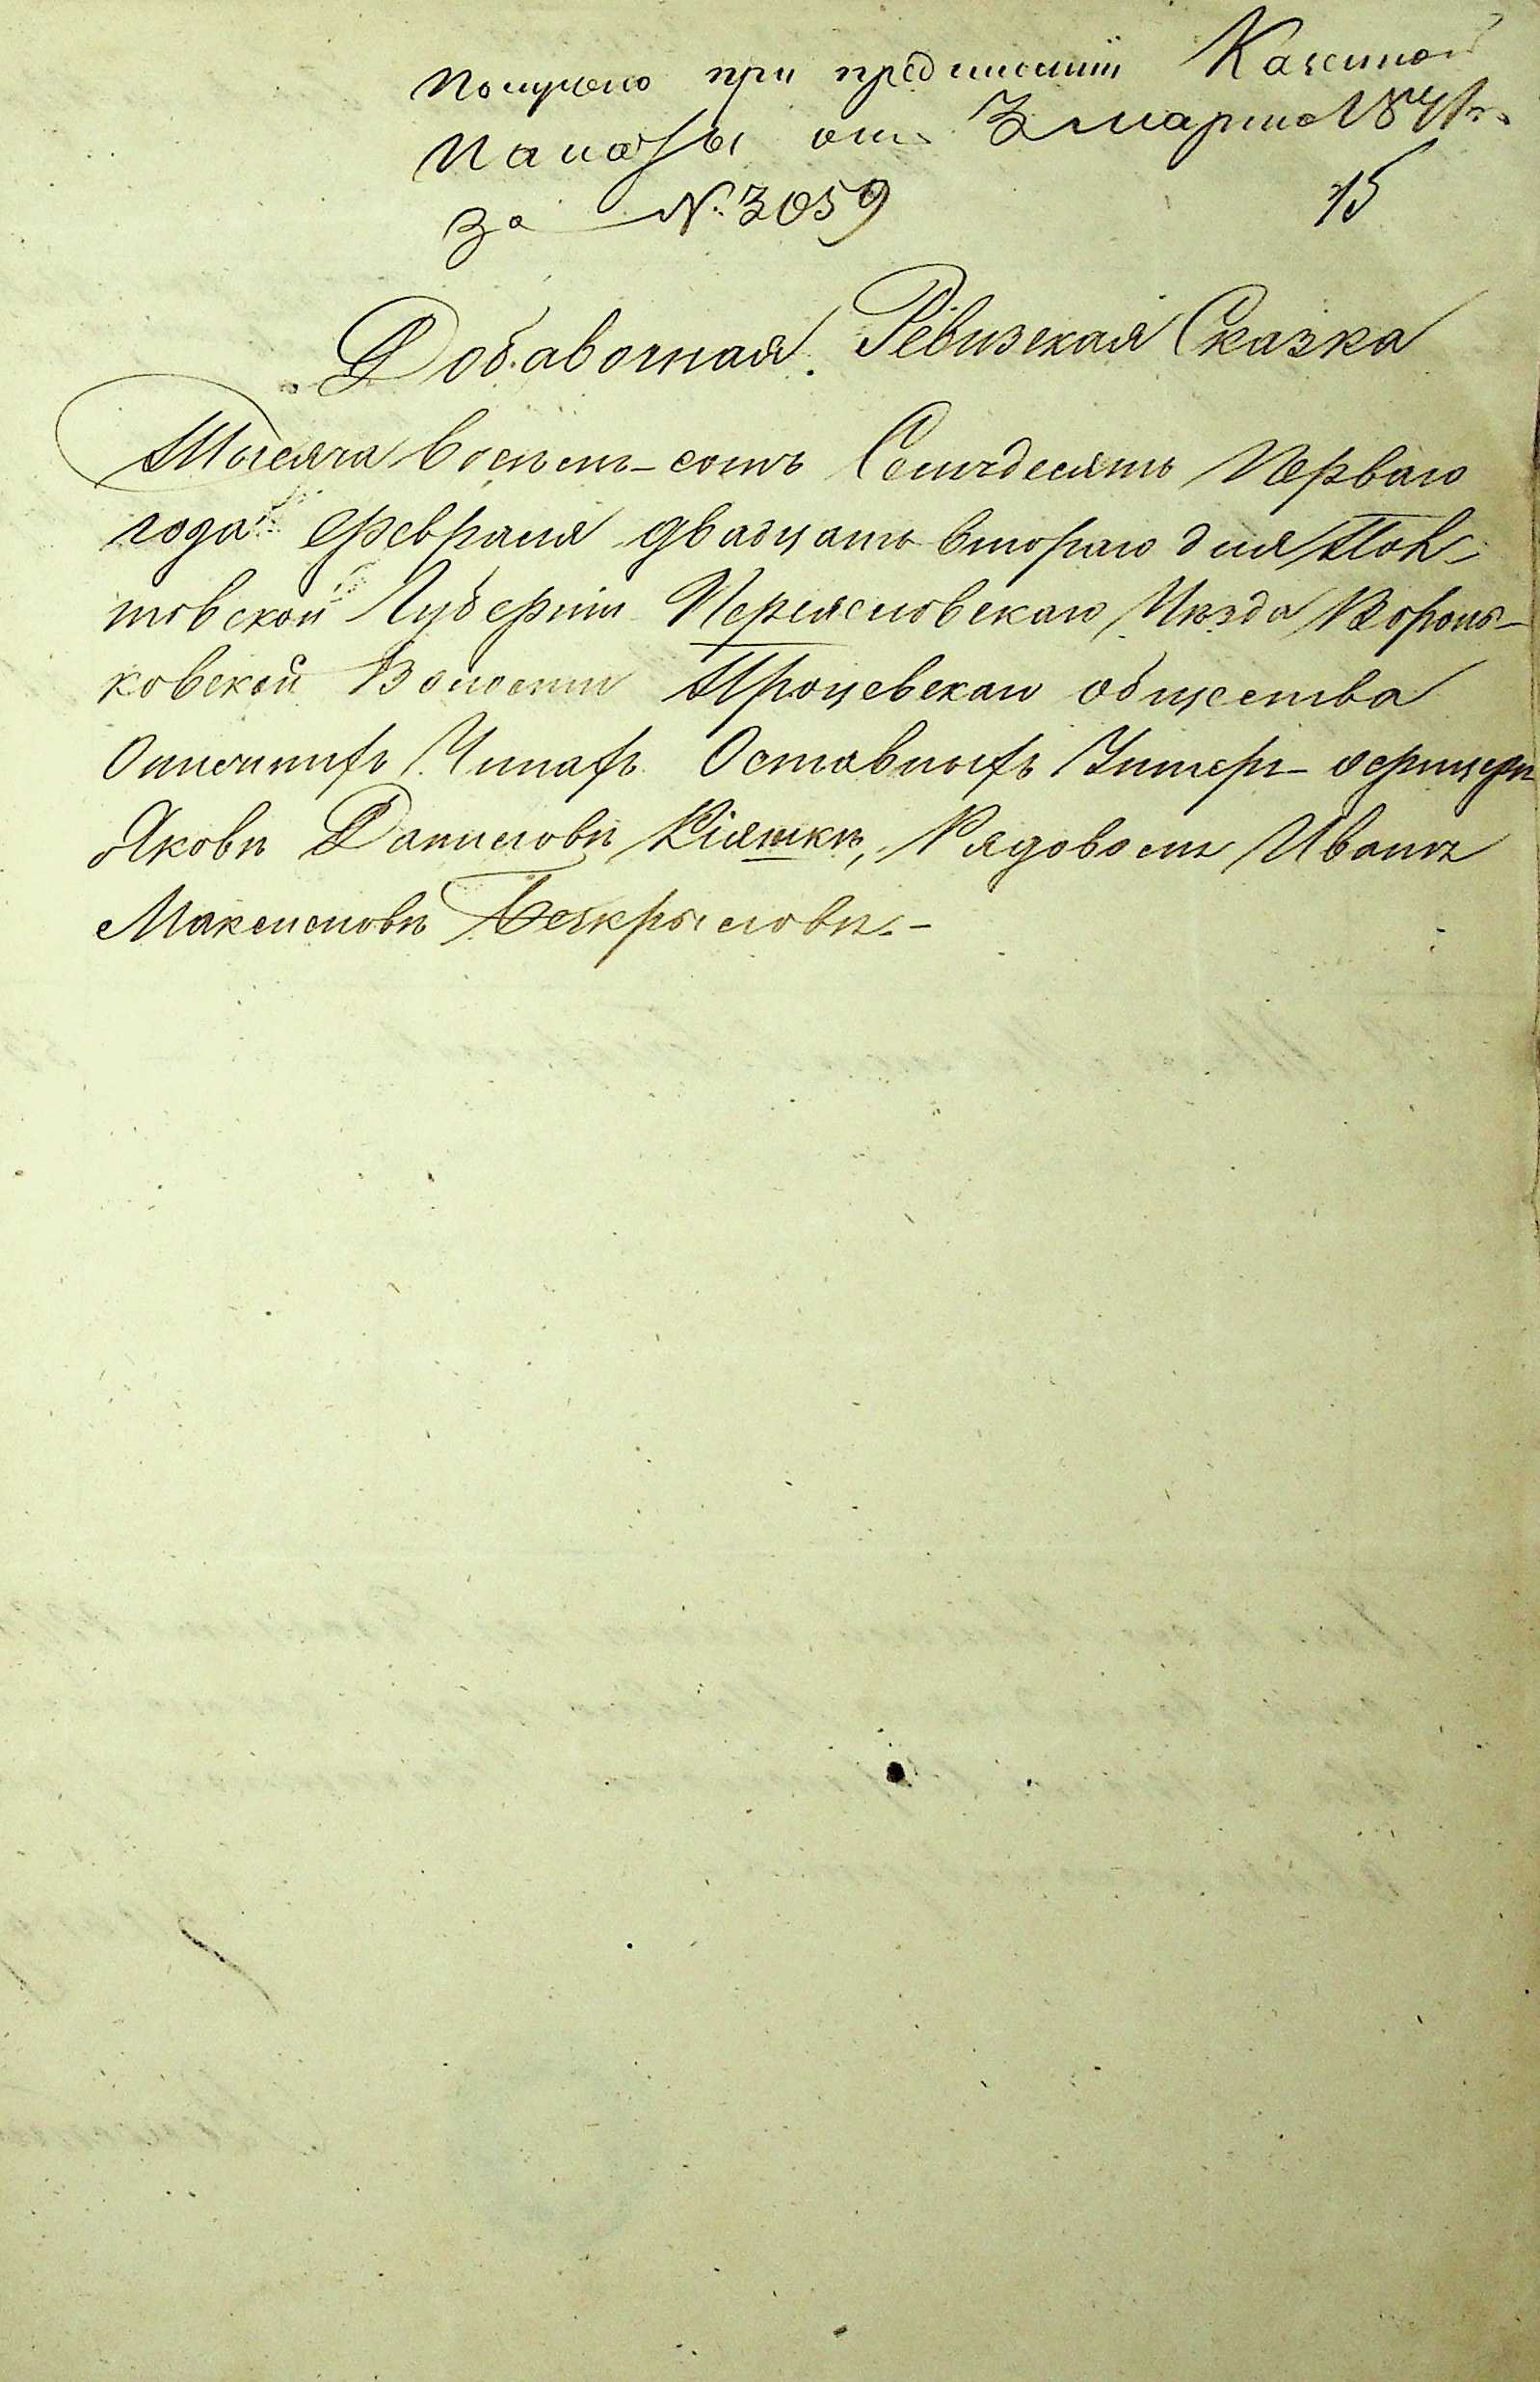 Получено при предписаніи Казенной
Палаты отъ 3 марта 1871 г.
за №. 3059
15
Добавочная Ревизская Сказка
Тысяча восемь-сотъ Семьдесятъ Перваго
года Февраля двадцать втораго дня Пол-
тавской Губерніи Переясловскаго Уѣзда Воронь-
ковской Волости Процевскаго общества
Чинахъ Оставныхъ Унтеръ-офицеръ
Яковъ Даниловъ Кіяшкъ, Рядовомъ Иванъ
Максимовъ